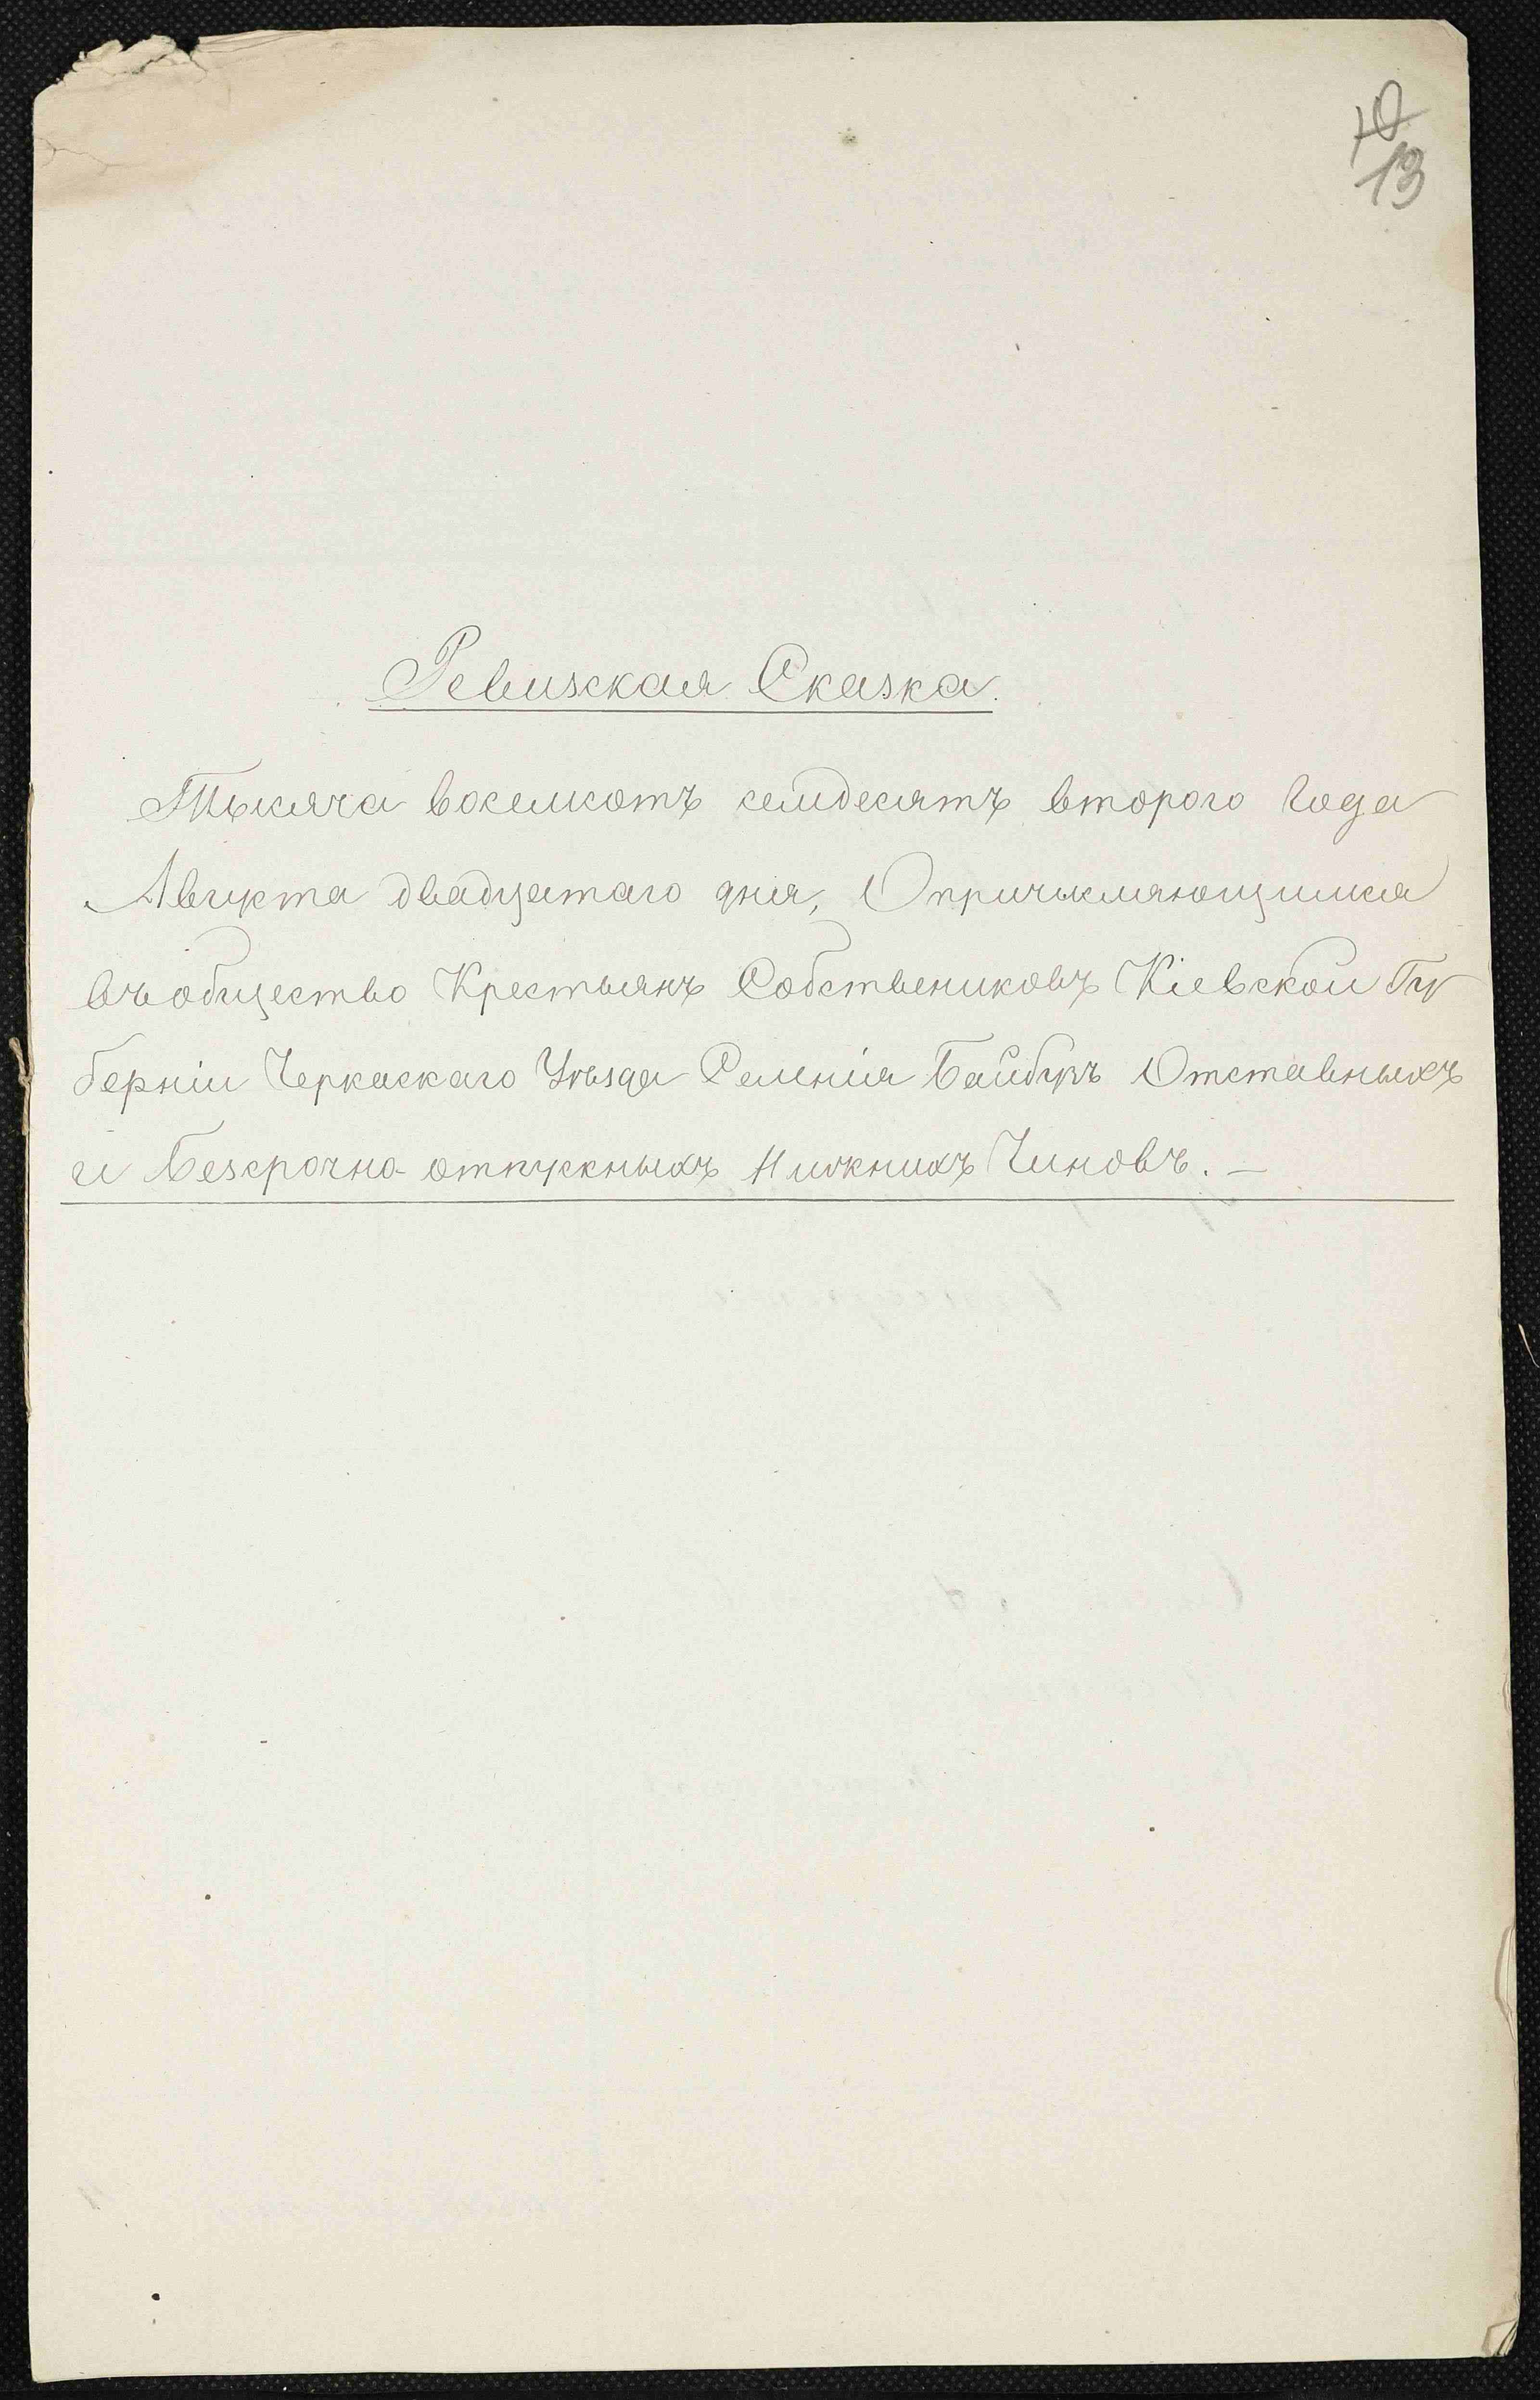 13
Ревизская Сказка.
Тысяча восемсотъ семдесятъ второго Года
Августа двадцатаго дня, Опричисляющимся
въ общество Крестьянъ Собствениковъ Кіевской Гу
берніи Черкаскаго Уѣзда Селенія Байбузъ Отставныхъ
и Безсрочно отпускныхъ Нижнихъ Чиновъ. —